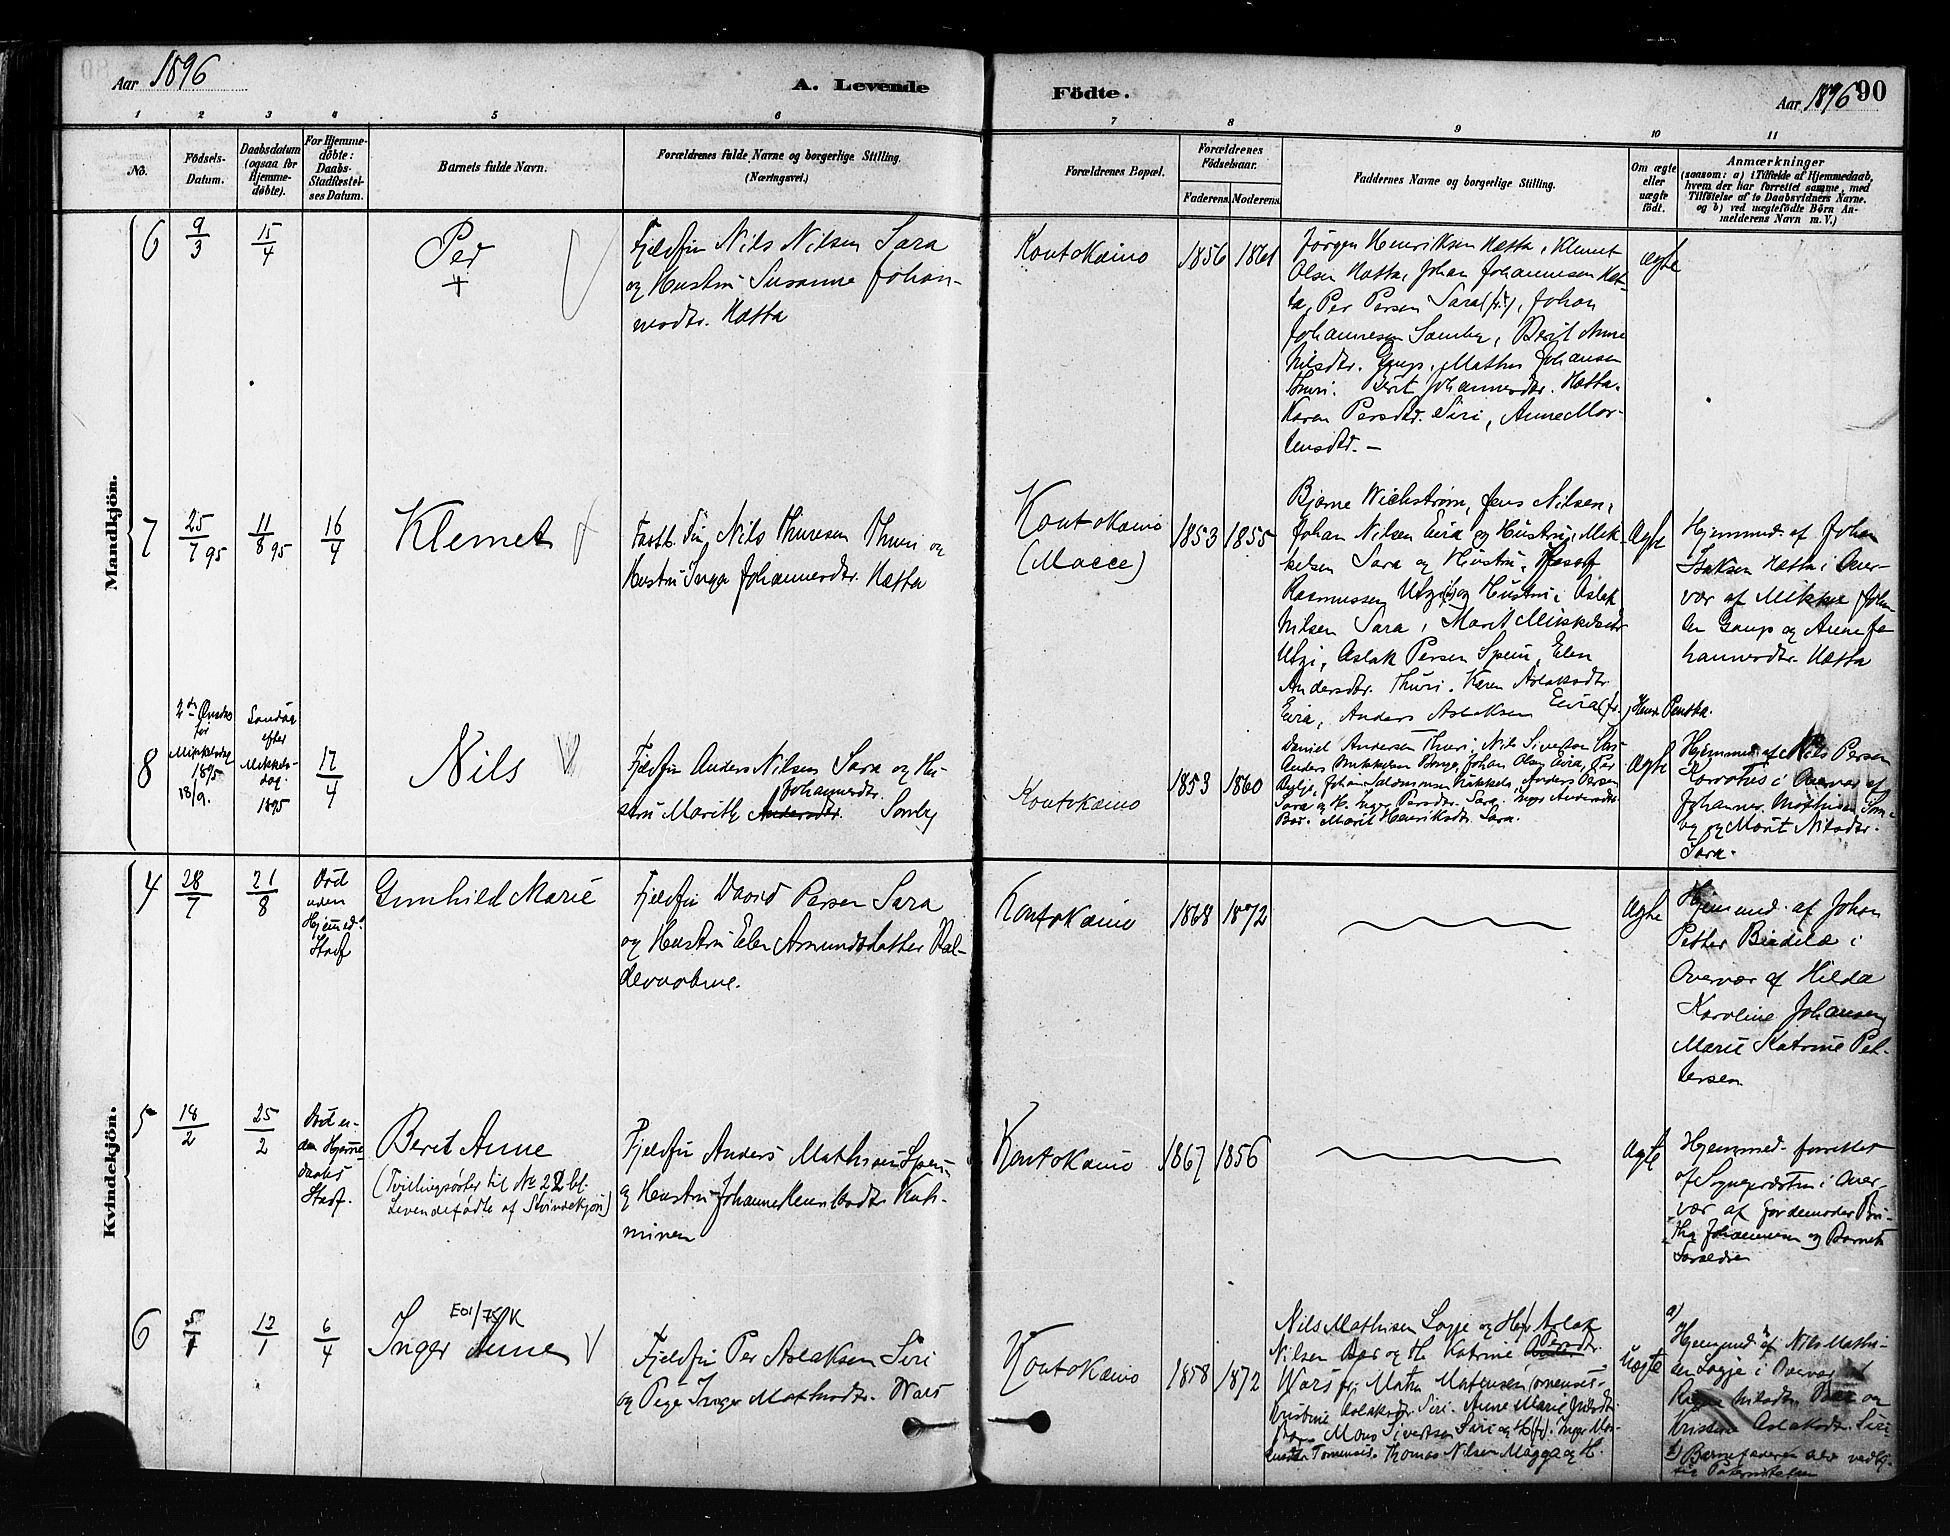 Aar 1896
A. Levende
Födte.
Aar 1896
90
1 2 3 4 5 6 7 8 9 10 11
No.
Födsels-
Datum.
Daabsdatum
(ogsaa for
Hjemme-
döbte).
For Hjemme-
döbte:
Daabs-
Stadfæstel-
ses Datum.
Barnets fulde Navn.
Forældrenes fulde Navne og borgerlige Stilling.
(Næringsvei.)
Forældrenes Bopæl.
Forældrenes
Födselsaar.
Faderens. Moderens.
Faddernes Navne og borgerlige Stilling.
Om ægte
eller
uægte
födt.
Anmærkninger
(saasom: a) i Tilfælde af Hjemmedaab,
hvem der har forrettet samme, med
Tilföielse af to Daabsvidners Navne.
og b) ved uægtefödte Börn An-
melderens Navn m. V.)
Mandkjön.
6
9/3
15/4
Per
+
Fjeldfin Nils Nilsen Sara
og Hustru Susanne Johan-
nesdtr. Hætta
Koutokæino
1856 1861
Jörgen Henriksen Hætta, Klemet
Olsen Hætta, Johan Johannesen Hæt-
ta, Per Persen Sara (fr.), Johan
Johannesen Somby, Berit Anne
Nilsdtr. Gaup, Mathis Johansen
Thuri. Berit Johannesdtr. Hætta.
Karen Persdtr. Siri, Anne Mor-
tensdtr. —
ægte
7
25/7 95
11/8 95
16/4
Klemet
Fastb. Fin Nils Thuresen Thuri og
Hustru Inga Johannesdtr. Hætta
Koutokæino
(Macce)
1853 1855
Bjarne Wichstrøm, Jens Nilsen,
Johan Nilsen Eira og Hustru, Mik-
kelsen Sara og Hustru,
Rasmussen Utzi og Hustru, Aslak
Nilsen Sara, Marit Mikkelsdtr
Utzi, Aslak Persen Spein, Elen
Andersdtr. Thuri. Karen Aslaksdtr
Eira, Anders Aslaksen Eira (fr.), Henr. Pentha.
Ægte
Hjemmed. af Johan
Isaksen Hætta i Over-
vær af Mikkel Johan-
sen Gaup og Anne Jo-
hannesdtr. Hætta
8
2den Onsdag
før
Mikkelsdag
1895
18/9.
Søndag
efter
Mikkels-
dag.
1895
17/4
Nils
Fjeldfin Anders Nilsen Sara og Hu-
stru Marith Andersdtr. Johannesdtr. Somby
Koutokæino
1853 1860
Daniel Andersen Thuri, Nils Sivertsen
Anders Mikkelsen, Johan Olsen Eira, Per
Johan Salomonsen Nikkels, Anders Persen
Sara og H. Inger Persdtr. Sara. Inger Andersdtr.
Bær. Marit Henriksdtr. Sara.
Ægte
Hjemmed. af Nils Persen
i Overvær af
Johannes Mathisen Som-
by og Marit Nilsdtr.
Sara.
Kvindekjön.
4
28/7
21/8
Död
uden
Hjemmed.
Stadf
Gunhild Marie
Fjeldfin David Persen Sara
og Hustru Elen Amundsdatter Val-
Koutokæino
1868 1872
Ægte
Hjemmed. af Johan
Petter Bædilæ i
Overvær af Hilda
Karoline Johansen
Marie Katrine Pet-
tersen
5
18/2
25/2
Död u-
den Hjemme-
daabs
Stadf.
Berit Anne
(Tvillingsöster til No 22 bl.
Levendefödte af Kvindekjön)
Fjeldfin Anders Mathisen Spein
og Hustru Johanne Henriksdtr. Kuh-
minen
Koutokæino
1867 1856
Ægte
Hjemmed. forrettet
af Sognepræsten i Over-
vær af Jordemoder Bri-
tha Johannesen og Barnets
Forældre
6
5/1
12/1
6/4
E01/75/K
Inger Anne
Fjeldfin Per Aslaksen Siri
og Pige Inger Mathisdtr. Wars
Koutokæino
1858 1872
Nils Mathisen Logje og H. Aslak
Nilsen Bær og H. Katrine Persdtr.
Wars fr. Mathis Mathisen Tornensis
Kristine Aslaksdtr. Siri. Anne Marie
Mons Sivertsen Siri og H (fr). Inger
Tornensis. Thomas Nilsen Magga og H.
Uægte
a)
Hjemmed. af Nils Mathi-
sen Logje i Overvær af
Nilsdtr. Bær og
Kristine Aslaksdtr. Siri
b) Barnefaderen selv